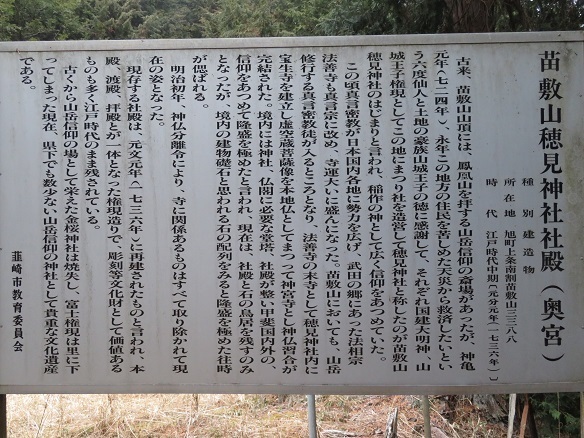 苗敷山穂見神社社殿(奥宮)
種別 建造物
所在地 旭町上条南割苗敷山三三一八八
時代 江戸時代中期(元文元年(一七三六年))
古来、苗敷山山頂には、鳳凰山を拝する山岳信仰の斎場があったが、神亀
元年(七二四年)、永年この地方の住民を苦しめた天災から救済したとい
う六度仙人と土地の豪族山城王子の徳に感謝して、それぞれ国建大明神、山
城王子権現としてこの地にまつり社を造営して穂見神社と称したのが苗敷山
穂見神社のはじまりと言われ、稲作の神として広く信仰をあつめていた。
この頃真言密教が日本国内各地に勢力を広げ、武田の郷にあった法相宗
法善寺も真言宗に改め、寺運大いに盛んになった。苗敷山においても、山岳
修行する真言密教徒が入るところとなり、法善寺の末寺として穂見神社内に
宝生寺を建立し虚空蔵菩薩像を本地仏としてまつって神宮寺とし神仏習合が
完結された。境内には神社、仏閣に必要な堂塔、社殿が整い甲斐国内外の、
信仰をあつめて隆盛を極めたと言われ、現在は、社殿と石の鳥居を残すのみ
となったが、境内の建物礎石と思われる石の配列をみると隆盛を極めた往時
が偲ばれる。
明治初年、神仏分離令により、寺に関係あるものはすべて取り除かれて現
在の姿となった。
現存する社殿は、元文元年(一七三六年)に再建されたものと言われ、本
殿、渡殿、拝殿とが一体となった権現造りで、彫刻等文化財として価値ある
ものも多く江戸時代のまま残されている。
古くから山岳信仰の場として栄えた金桜神社は焼失し、富士権現は里に下
ってしまった現在、県下でも数少ない山岳信仰の神社として貴重な文化遺産
である。
韮崎市教育委員会